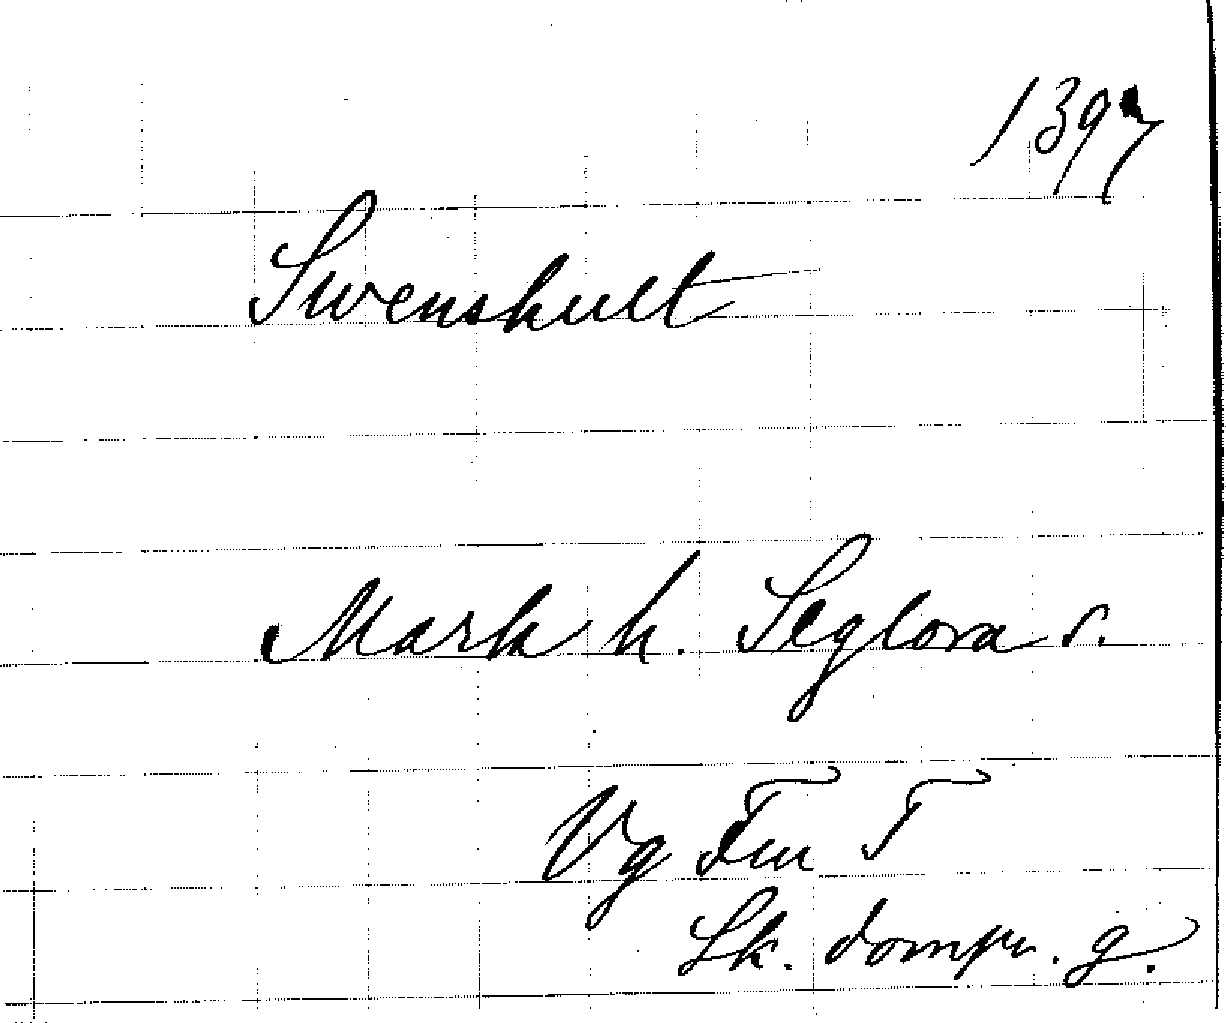 1397
Swenshult
Mark h. Seglora s.
Vg Fm T
Sk. dompr. g.